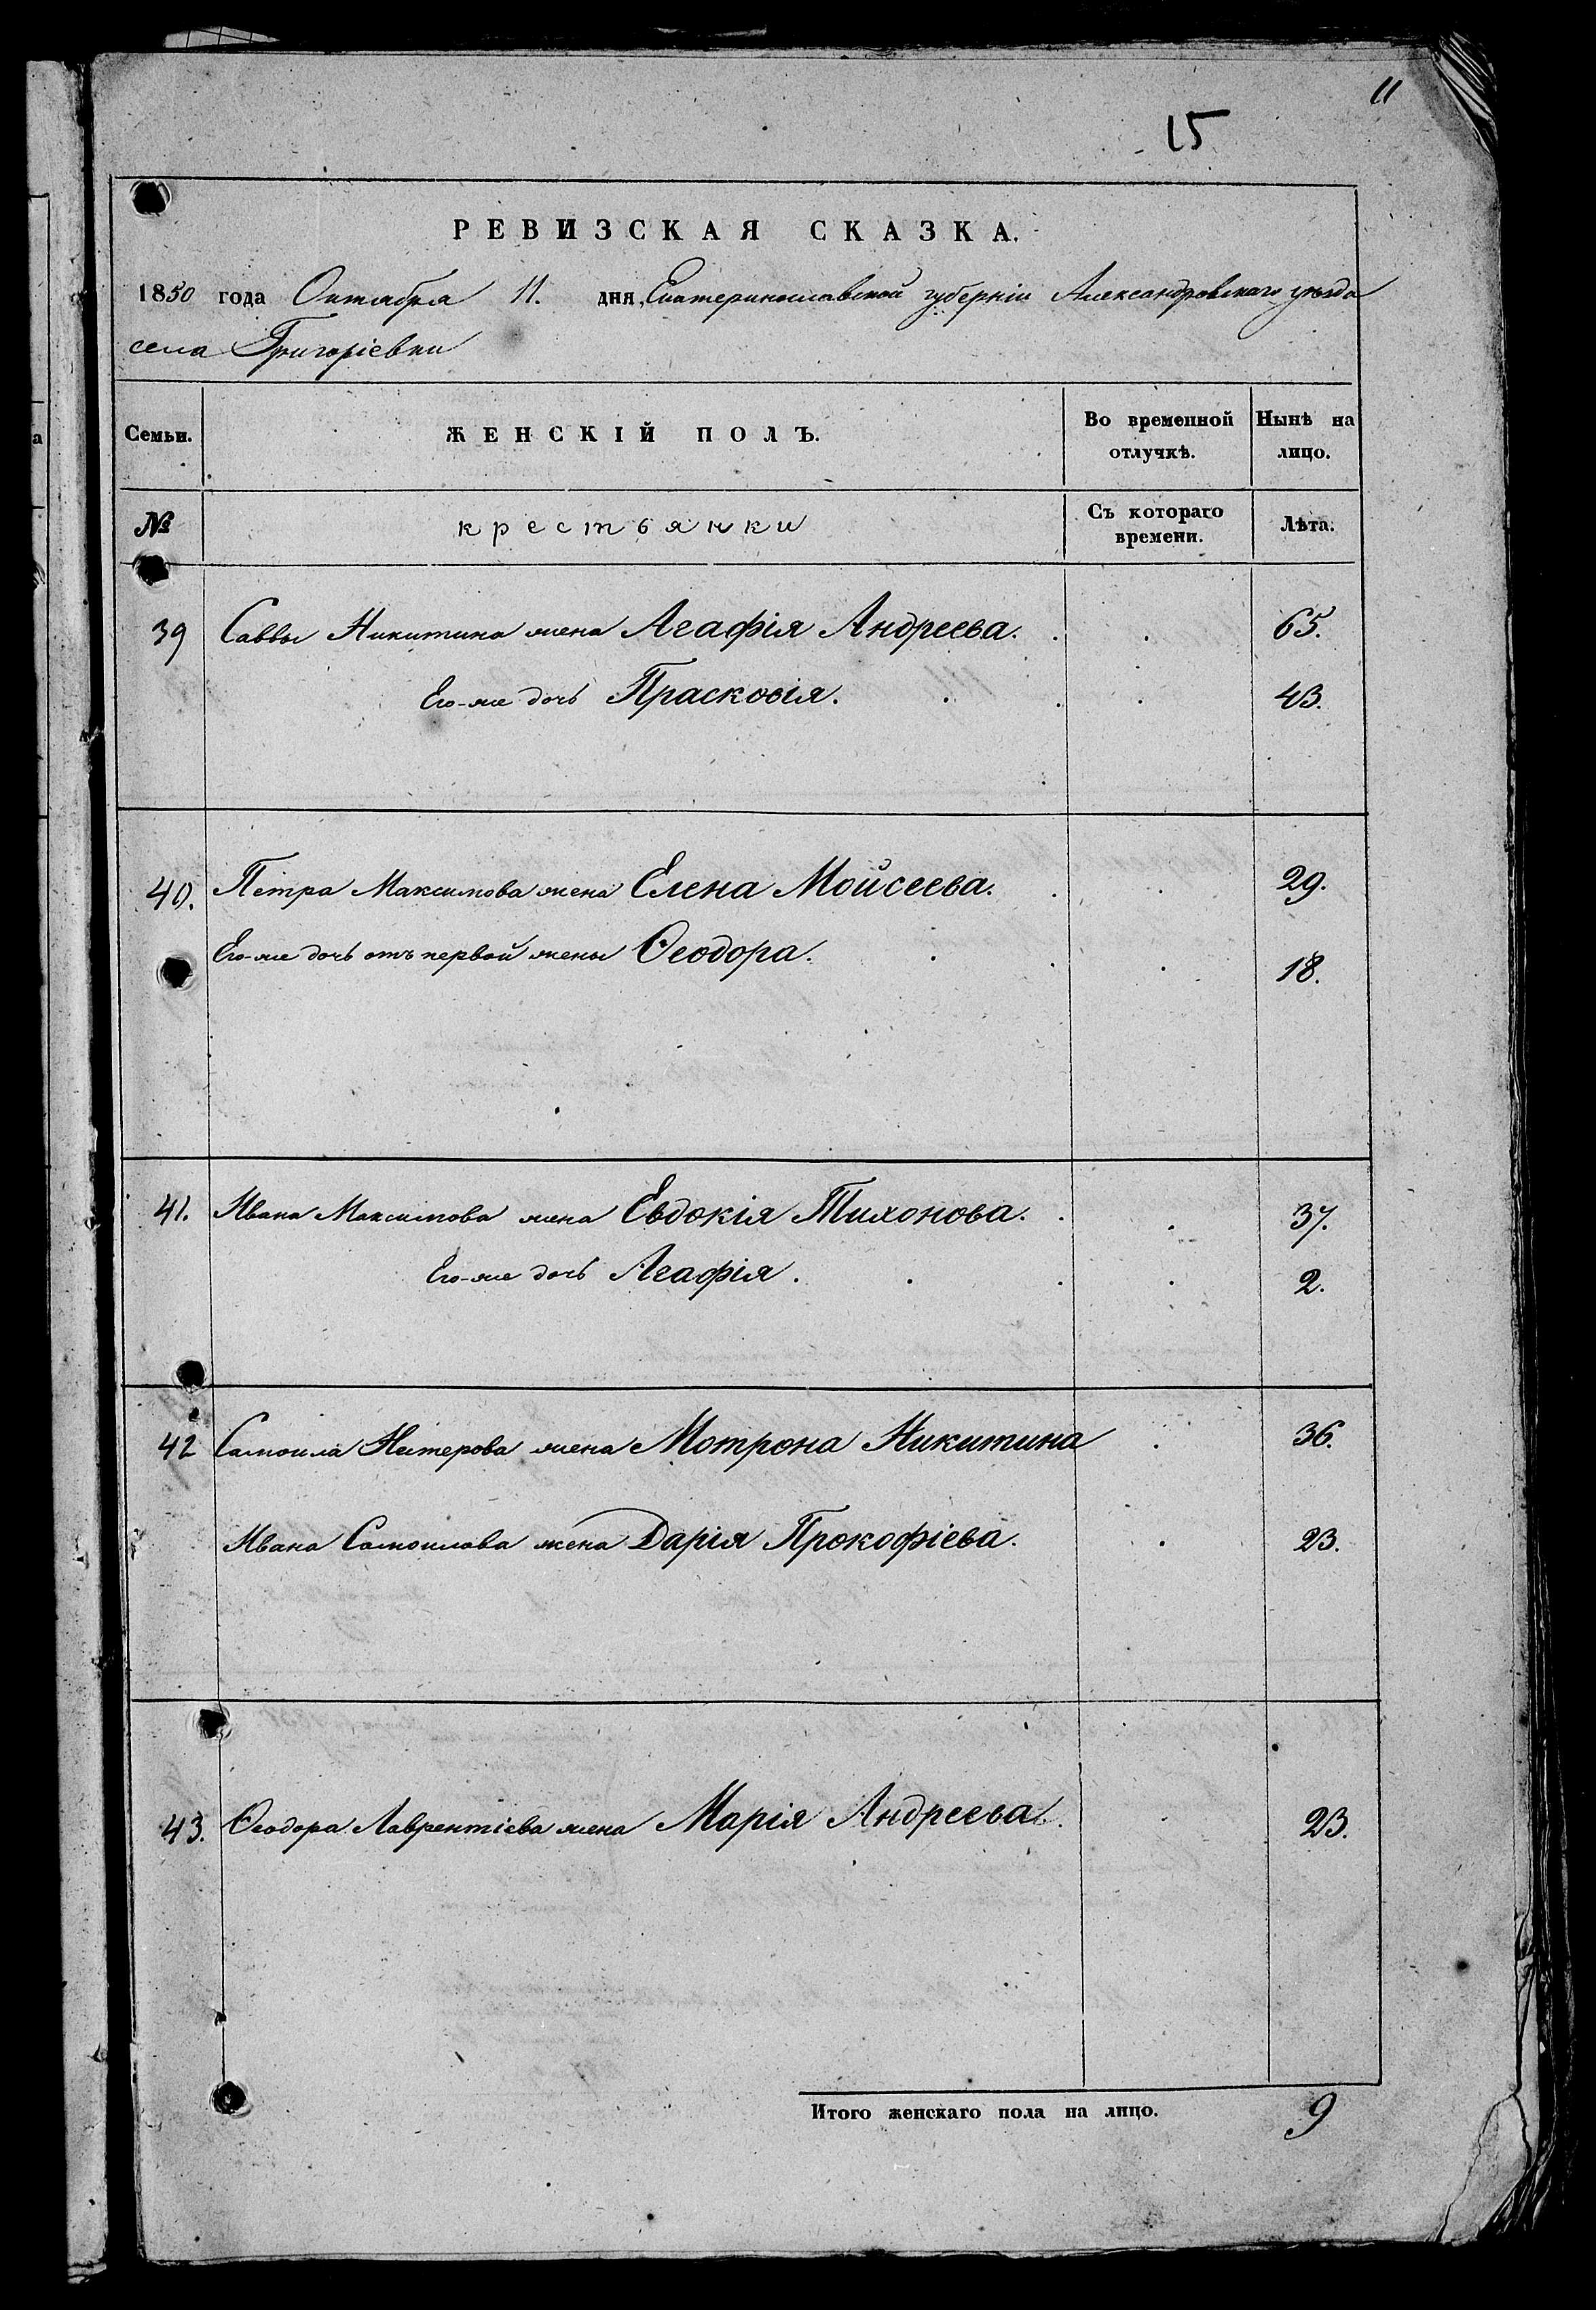 11
15
РЕВИЗСКАЯ СКАЗКА.
1850 года Октября 11. дня, Екатеринославской губерніи Александровскаго уѣзда
села Григоріевки
Семьи. ЖЕНСКІЙ ПОЛЪ. Во временной отлучкѣ. Нынѣ на лицо.
№ крестьянки Съ котораго времени. Лѣта.
39 Саввы Никитина жена Агафія Андреева. 65.
Его-же дочь Прасковія. 43.
40. Петра Максимова жена Елена Мойсеева. 29.
Его-же дочь отъ первой жены Ѳеодора. 18.
41. Ивана Максимова жена Евдокія Тихонова. 37.
Его-же дочь Агафія. 2.
42 Самоила Нестерова жена Мотрона Никитина 36.
Ивана Самоилова жена Дарія Прокофіева. 23.
43. Ѳеодора Лаврентіева жена Марія Андреева. 23.
Итого женскаго пола на лицо. 9